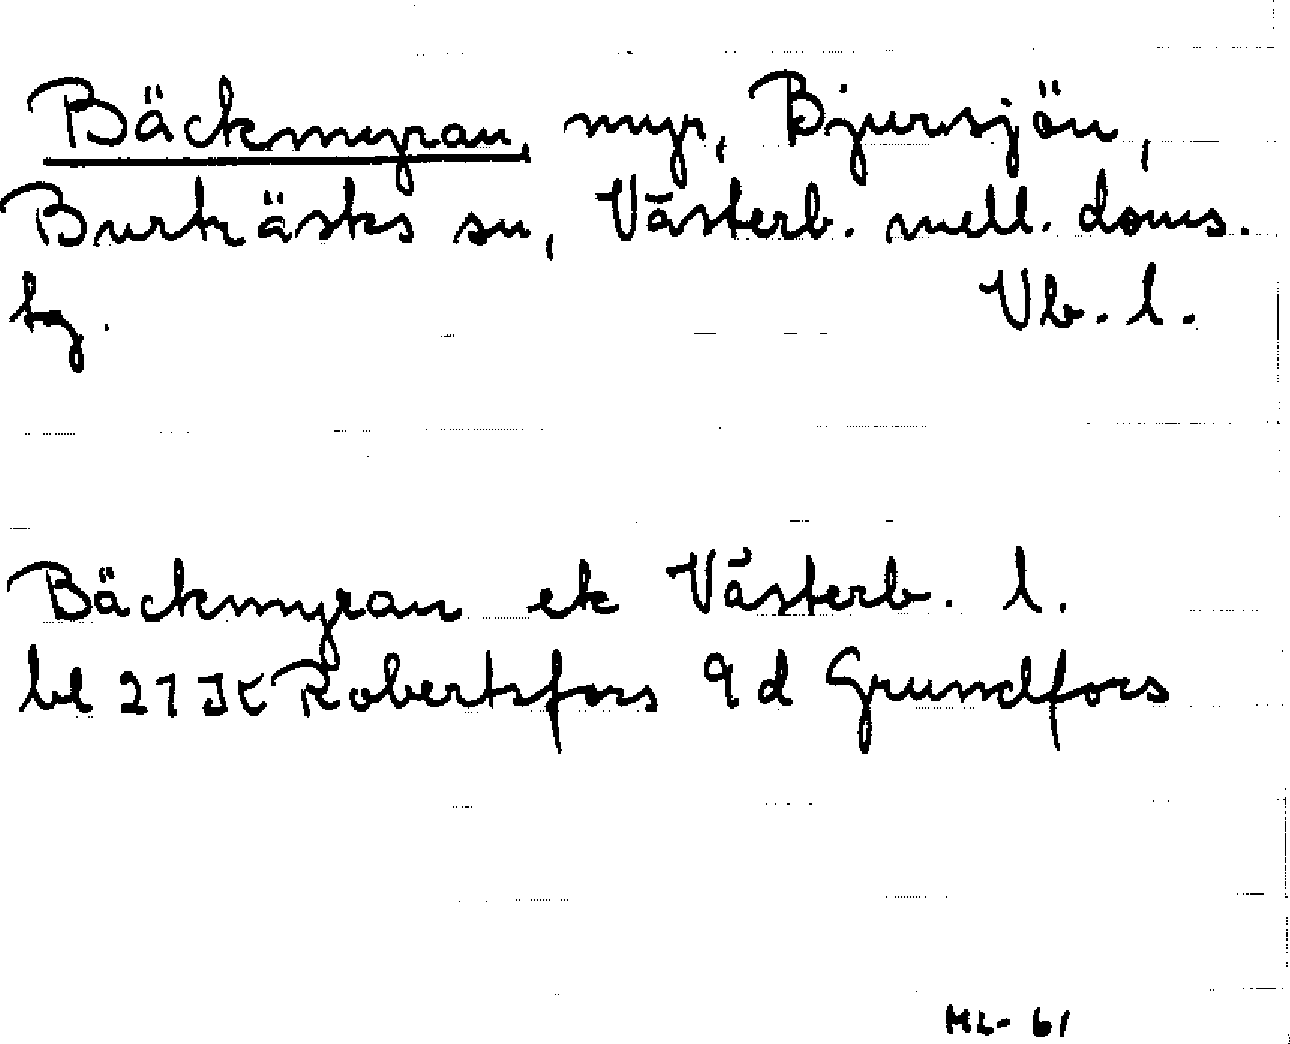 Bäckmyran, myr, Bjursjön,
Burträsks sn, Västerb. mell. doms.
tg. Vb. l.
Bäckmyran ek Västerb. l.
bl 21 JK Robertsfors 9 d Grundfors
ML- 61